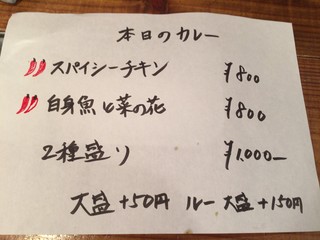 本日のカレー
スパイシーチキン ¥800
自身魚と菜の花 ¥800
2種盛り ¥1,000-
大盛+50円 ルー大盛+150円